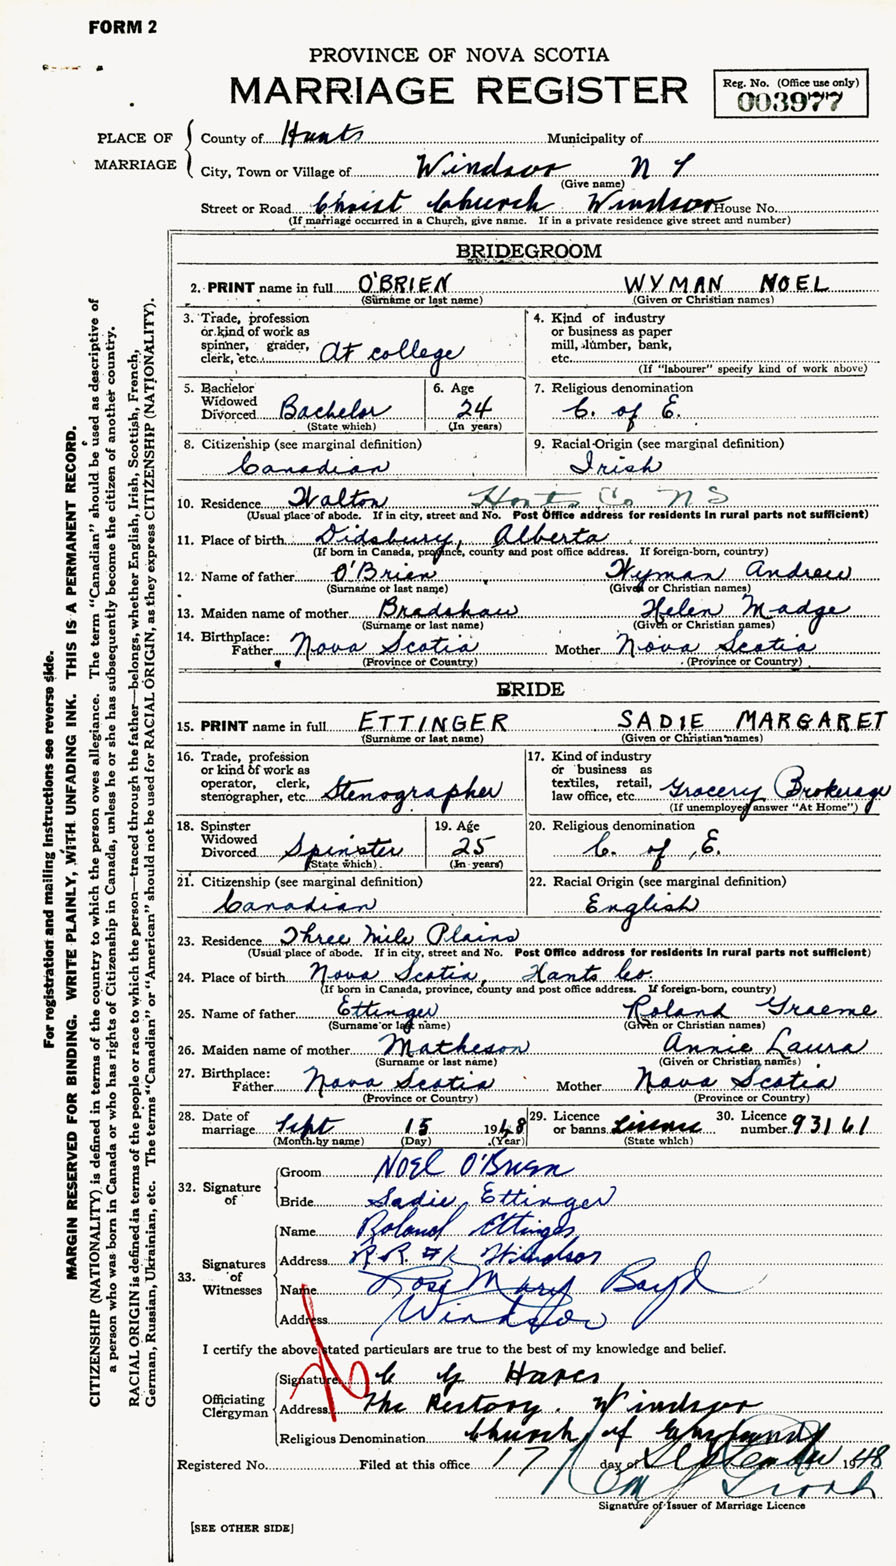 FORM 2
PROVINCE OF NOVA SCOTIA
MARRIAGE REGISTER
Reg. No. (Office use only)
003977
PLACE OF MARRIAGE
County of Hants Municipality of
City, Town or Village of Windsor N S
(Give name)
Street or Road Christ Church Windsor House No.
(If marriage occurred in a Church, give name. If in a private residence give street and number)
BRIDEGROOM
2. PRINT name in full O'BRIEN WYMAN NOEL
(Surname or last name) (Given or Christian names)
3. Trade, profession or kind of work as spinner, grader, clerk, etc. At college
4. Kind of industry or business as paper mill, lumber, bank, etc.
(If "labourer" specify kind of work above)
5. Bachelor Widowed Divorced Bachelor
(State which)
6. Age 24
(In years)
7. Religious denomination
C. of E.
8. Citizenship (see marginal definition)
Canadian
9. Racial Origin (see marginal definition)
Irish
10. Residence Walton Hants Co N S
(Usual place of abode. If in city, street and No. Post Office address for residents in rural parts not sufficient)
11. Place of birth Didsbury, Alberta
(If born in Canada, province, county and post office address. If foreign-born, country)
12. Name of father O'Brien Wyman Andrew
(Surname or last name) (Given or Christian names)
13. Maiden name of mother Bradshaw Helen Madge
(Surname or last name) (Given or Christian names)
14. Birthplace:
Father Nova Scotia Mother Nova Scotia
(Province or Country) (Province or Country)
BRIDE
15. PRINT name in full ETTINGER SADIE MARGARET
(Surname or last name) (Given or Christian names)
16. Trade, profession or kind of work as operator, clerk, stenographer, etc. Stenographer
17. Kind of industry or business as textiles, retail, law office, etc Grocery Brokerage
(If unemployed answer "At Home")
18. Spinster Widowed Divorced Spinster
(State which)
19. Age 25
(In years)
20. Religious denomination
C. of E.
21. Citizenship (see marginal definition)
Canadian
22. Racial Origin (see marginal definition)
English
23. Residence Three Mile Plains
(Usual place of abode. If in city, street and No. Post Office address for residents in rural parts not sufficient)
24. Place of birth Nova Scotia, Hants Co.
(If born in Canada, province, county and post office address. If foreign-born, country)
25. Name of father Ettinger Roland Graeme
(Surname or last name) (Given or Christian names)
26. Maiden name of mother Matheson Annie Laura
(Surname or last name) (Given or Christian names)
27. Birthplace:
Father Nova Scotia Mother Nova Scotia
(Province or Country) (Province or Country)
28. Date of marriage Sept 15 1948
(Month by name) (Day) (Year)
29. Licence or banns License
(State which)
30. Licence number 93161
32. Signature of
Groom Noel O'Brien
Bride Sadie Ettinger
33. Signatures of Witnesses
Name Roland Ettinger
Address R.R. #1 Windsor
Name Rose Mary Boyd
Address Windsor
I certify the above stated particulars are true to the best of my knowledge and belief.
Officiating Clergyman
Signature C G
Address The Rectory. Windsor
Religious Denomination Church of England
Registered No. Filed at this office 17 day of September 1948
Signature of Issuer of Marriage Licence
[SEE OTHER SIDE]
For registration and mailing instructions see reverse side.
MARGIN RESERVED FOR BINDING. WRITE PLAINLY, WITH UNFADING INK. THIS IS A PERMANENT RECORD.
CITIZENSHIP (NATIONALITY) is defined in terms of the country to which the person owes allegiance. The term "Canadian" should be used as descriptive of
a person who was born in Canada or who has rights of Citizenship in Canada, unless he or she has subsequently become the citizen of another country.
RACIAL ORIGIN is defined in terms of the people or race to which the person—traced through the father—belongs, whether English, Irish, Scottish, French,
German, Russian, Ukrainian, etc. The terms "Canadian" or "American" should not be used for RACIAL ORIGIN, as they express CITIZENSHIP (NATIONALITY).